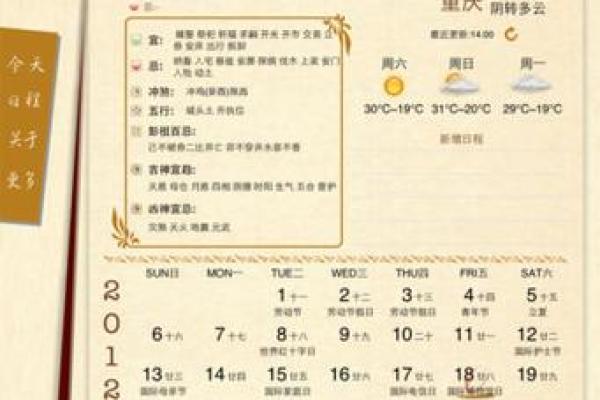 重庆 阴转多云
最近更新:14:00
今天
日程
关于
更多
宜:
券 安床 出行 拆卸
忌:
人物 动土
冲煞: 冲鸡(癸酉)煞西
五行: 城头土 开执位
彭祖百忌:
己不破券二比并亡 卯不穿井水泉不香
吉神宜趋:
天恩 母仓 月恩 四相 阴德 时阳 生气 五合 鸣吠对
凶神宜忌:
灾煞 天火 地囊 元武
周六 周日 周一
30°C~19°C 31°C~20°C 29°C~19°C
新增日程
2012
SUN日 MON一 TUE二 WED三 THU四 FRI五 SAT六
1十一 2十二 3十三 4十四 5十五
劳动节 劳动节假日 劳动节假日 青年节 立夏
6十六 7十七 8十八 9十九 10二十 11廿一 12廿二
世界红十字日 国际护士节
13廿三 14廿四 15廿五 16廿六 17廿七 18廿八 19廿九
国际母亲节 国际家庭日 国际电信日